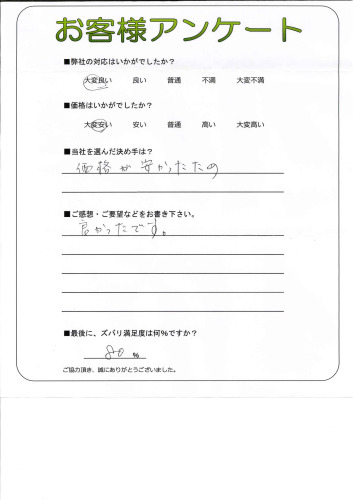 お客様アンケート
■弊社の対応はいかがでしたか？
大変良い 良い 普通 不満 大変不満
■価格はいかがでしたか？
大変安い 安い 普通 高い 大変高い
■当社を選んだ決め手は？
価格が安かったの
■ご感想・ご要望などをお書き下さい。
良かったです。
■最後に、ズバリ満足度は何%ですか？
80 %
ご協力頂き、誠にありがとうございました。